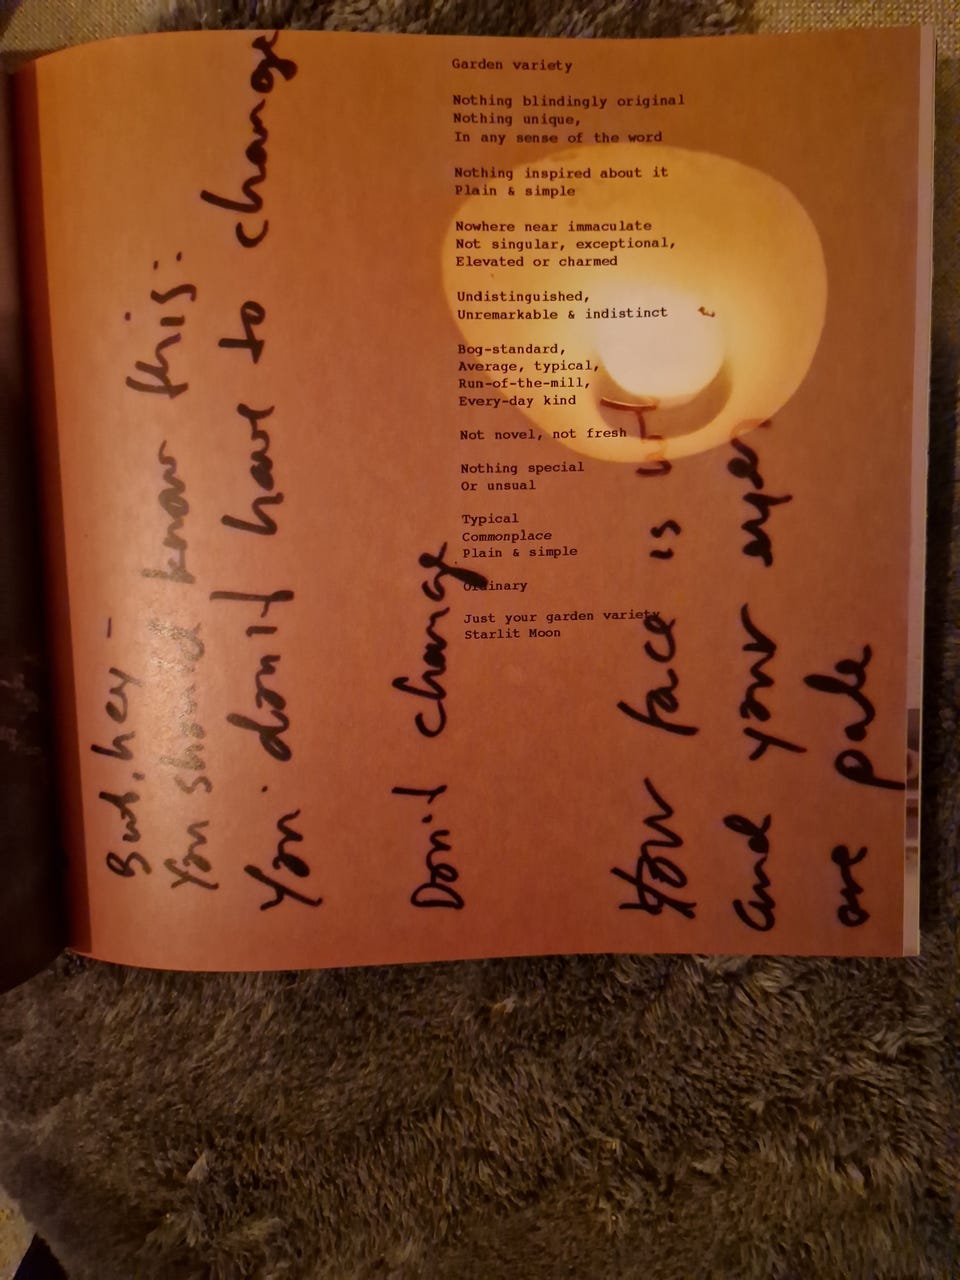 Garden variety
Nothing blindingly original
Nothing unique,
In any sense of the word
Nothing inspired about it
Plain & simple
Nowhere near immaculate
Not singular, exceptional,
Elevated or charmed
Undistinguished,
Unremarkable & indistinct
Bog-standard,
Average, typical,
Run-of-the-mill,
Every-day kind
Not novel, not fresh
Nothing special
Or unsual
Typical
Commonplace
Plain & simple
Ordinary
Just your garden variety
Starlit Moon
But, hey –
You should know this:
You don't have to change
Don't change
Your face is wet
And your eyes
are pale